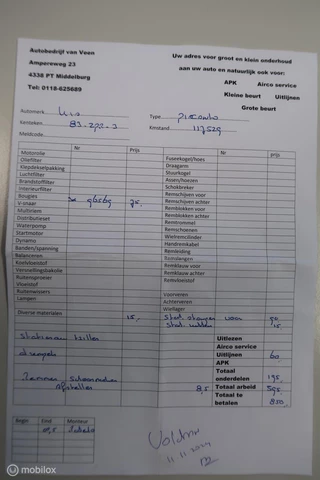 Autobedrijf van Veen
Ampereweg 23
4338 PT Middelburg
Tel: 0118-625689
Uw adres voor groot en klein onderhoud
aan uw auto en natuurlijk ook voor:
APK Airco service
Kleine beurt Uitlijnen
Grote beurt
Automerk Kia Type Picanto
Kenteken Kmstand 117529
Meldcode:
Nr Prijs
Motorolie
Oliefilter
Klepdekselpakking
Luchtfilter
Brandstoffilter
Interieurfilter
Bougies
V-snaar 75,
Multiriem
Distributieset
Waterpomp
Startmotor
Dynamo
Banden/spanning
Balanceren
Koelvloeistof
Versnellingsbakolie
Ruitensproeier
Vloeistof
Ruitenwissers
Lampen
Diverse materialen 15,
nr prijs
Fuseekogel/hoes
Draagarm
Stuurkogel
Assen/hoezen
Schokbreker
Remschijven voor
Remschijven achter
Remblokken voor
Remblokken achter
Remtrommel
Remschoenen
Wielremcilinder
Handremkabel
Remleiding
Remslangen
Remklauw voor
Remklauw achter
Remvloeistof
Voorveren
Achterveren
Wiellager
voor
15,
Uitlezen
Airco service
Uitlijnen 60,
APK
Totaal onderdelen 195,
8,5 Totaal arbeid 595,
Totaal te betalen 850,
Begin Eind Monteur
8,5
11 11 2024